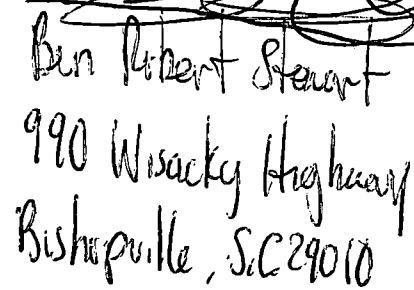 Ben Robert Stewart
990 Wisacky Highway
Bishopville, S.C 29010